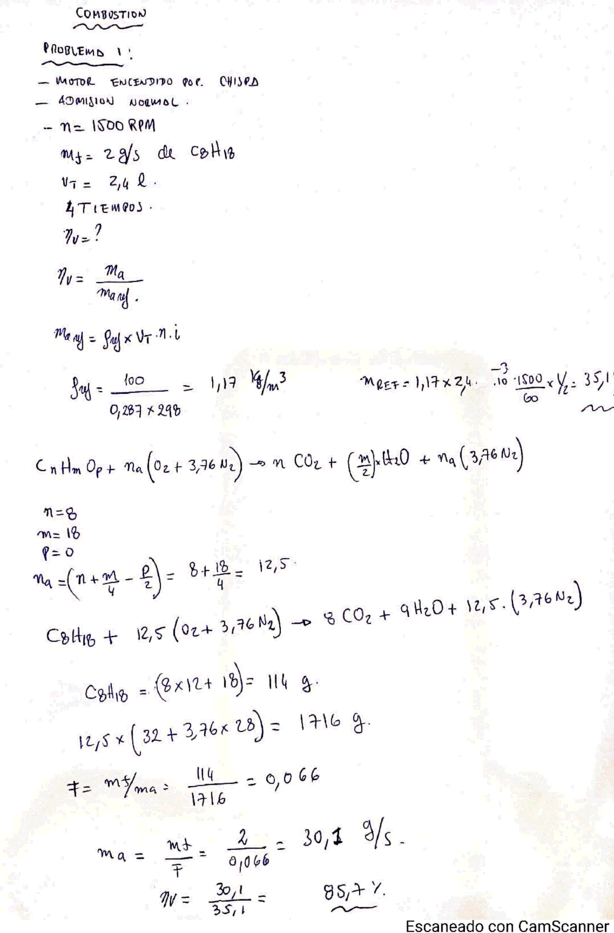 COMBUSTION
PROBLEMA 1:
- MOTOR ENCENDIDO POR CHISPA
- ADMISION NORMAL.
- n = 1500 RPM
mf = 2 g/s de C8H18
VT = 2,4 l.
4 TIEMPOS.
ηv = ?
ηv = ma / ma ref.
ma ref = ρref x VT . n . i
ρref = 100 / 0,287 x 298 = 1,17 kg/m³ mREF = 1,17 x 2,4 . 10⁻³ . 1500/60 x 1/2 = 35,1
CnHmOp + na (O2 + 3,76 N2) → n CO2 + (m/2) x H2O + na (3,76 N2)
n = 8
m = 18
p = 0
na = (n + m/4 - p/2) = 8 + 18/4 = 12,5.
C8H18 + 12,5 (O2 + 3,76 N2) → 8 CO2 + 9 H2O + 12,5 . (3,76 N2)
C8H18 = (8 x 12 + 18) = 114 g.
12,5 x (32 + 3,76 x 28) = 1716 g.
F = mf/ma = 114/1716 = 0,066
ma = mf/F = 2/0,066 = 30,1 g/s.
ηv = 30,1/35,1 = 85,7 %.
Escaneado con CamScanner